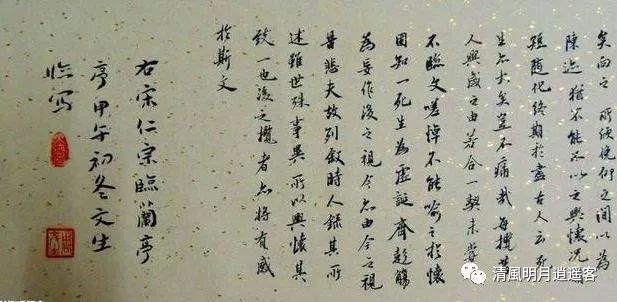 矣向之所欣俛仰之間以為
陳迹猶不能不以之興懷况
短隨化終期於盡古人云死
生亦大矣豈不痛哉每攬昔
人興感之由若合一契未嘗
不臨文嗟悼不能喻之於懷
固知一死生為虛誕齊彭殤
為妄作後之視今亦由今之視
昔悲夫故列敘時人錄其所
述雖世殊事異所以興懷其
致一也後之攬者亦將有感
於斯文
右宋仁宗臨蘭亭
亭甲午初冬文生
臨写
清風明月逍遥客